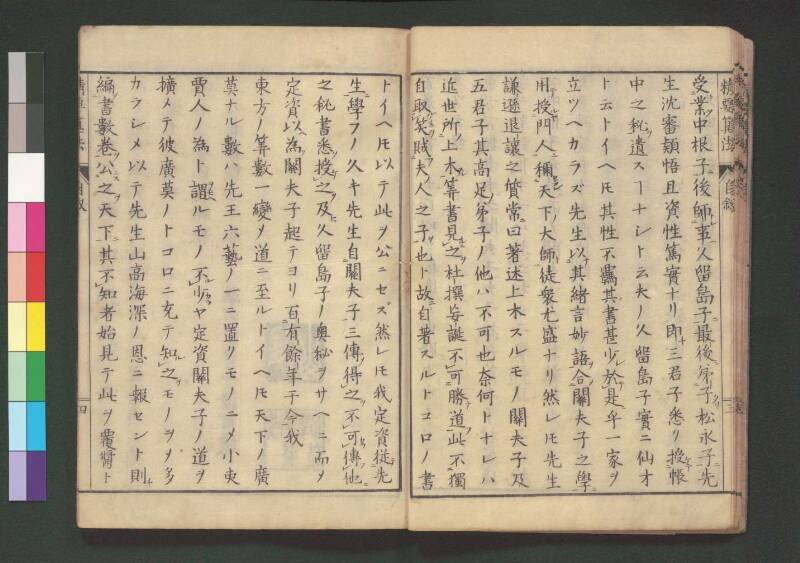 受業中根子後師事久留島子最後弟子松永子先
生沈審穎悟且資性篤實ナリ即三君子悉リ授帳
中之秘遺スコトナシト云夫ノ久留島子實ニ仙才
ト云トイヘトモ其性不羈其書甚少於是乎一家ヲ
立ツヘカラズ先生以其緒言妙語合關夫子之學
用授門人稱天下大師徒衆尤盛ナリ然レトモ先生
謙遜退讓之質常曰著述上木スルモノ關夫子及
五君子其高足弟子ノ他ハ不可也奈何トナレハ
近世所上木筭書見之杜撰妄誕不可勝道此不獨
自取笑賊夫人之子也ト故自著スルトコロノ書
トイヘトモ以テ此ヲ公ニセズ然レトモ我定資從先
生學フノ久キ先生自關夫子三傳得之不可傳他
之秘書悉授之及久留島子ノ奥秘ヲサヘニ而メ
定資以為關夫子起テヨリ百有餘年于今我
東方ノ筭數一變メ道ニ至ルトイヘトモ天下ノ廣
莫ナル數ハ先王六藝ノ一ニ置クモノニメ小吏
賈人ノ為ト謂ルモノ不少ヤ定資關夫子ノ道ヲ
擴メテ彼廣莫ノトコロニ充テ知之モノヲメ多
カラシメ以テ先生山高海深ノ恩ニ報セント則
編書數卷公之天下其不知者始見テ此ヲ覆醤ト
自叙
四